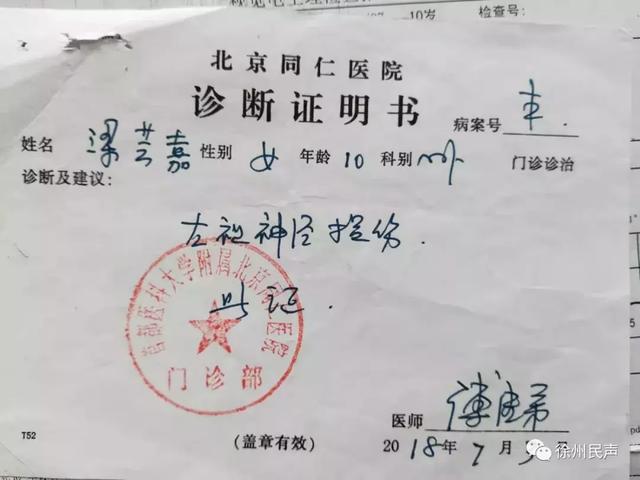 10岁 检查号:
北京同仁医院
诊断证明书
病案号
姓名 梁芸嘉 性别 女 年龄 10 科别 门诊诊治
诊断及建议:
左视神经损伤.
此证.
首都医科大学附属北京同仁医院
门诊部
医师
T52 (盖章有效) 2018年7月
徐州民声